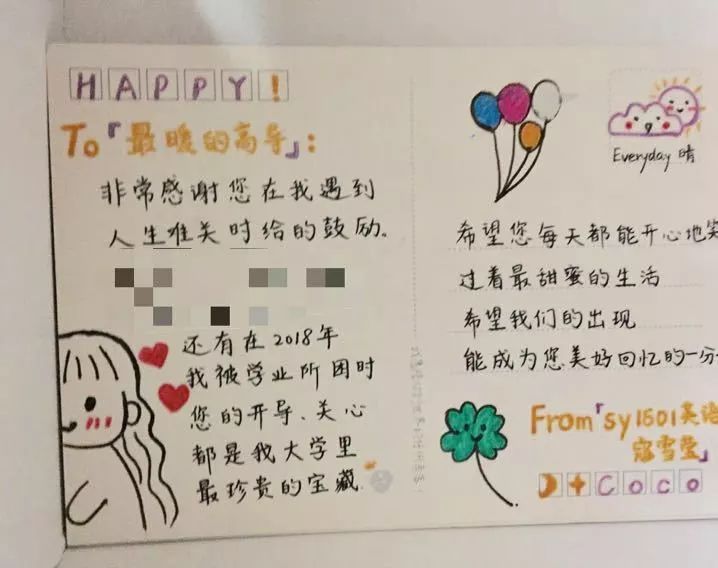 HAPPY!
To「最暖的高导」:
非常感谢您在我遇到
人生难关时给的鼓励。
还有在2018年
我被学业所困时
您的开导、关心
都是我大学里
最珍贵的宝藏
Everyday 晴
希望您每天都能开心地笑
过着最甜蜜的生活
希望我们的出现
能成为您美好回忆的一分
From「sy1501英语
寇雪莹」
Coco